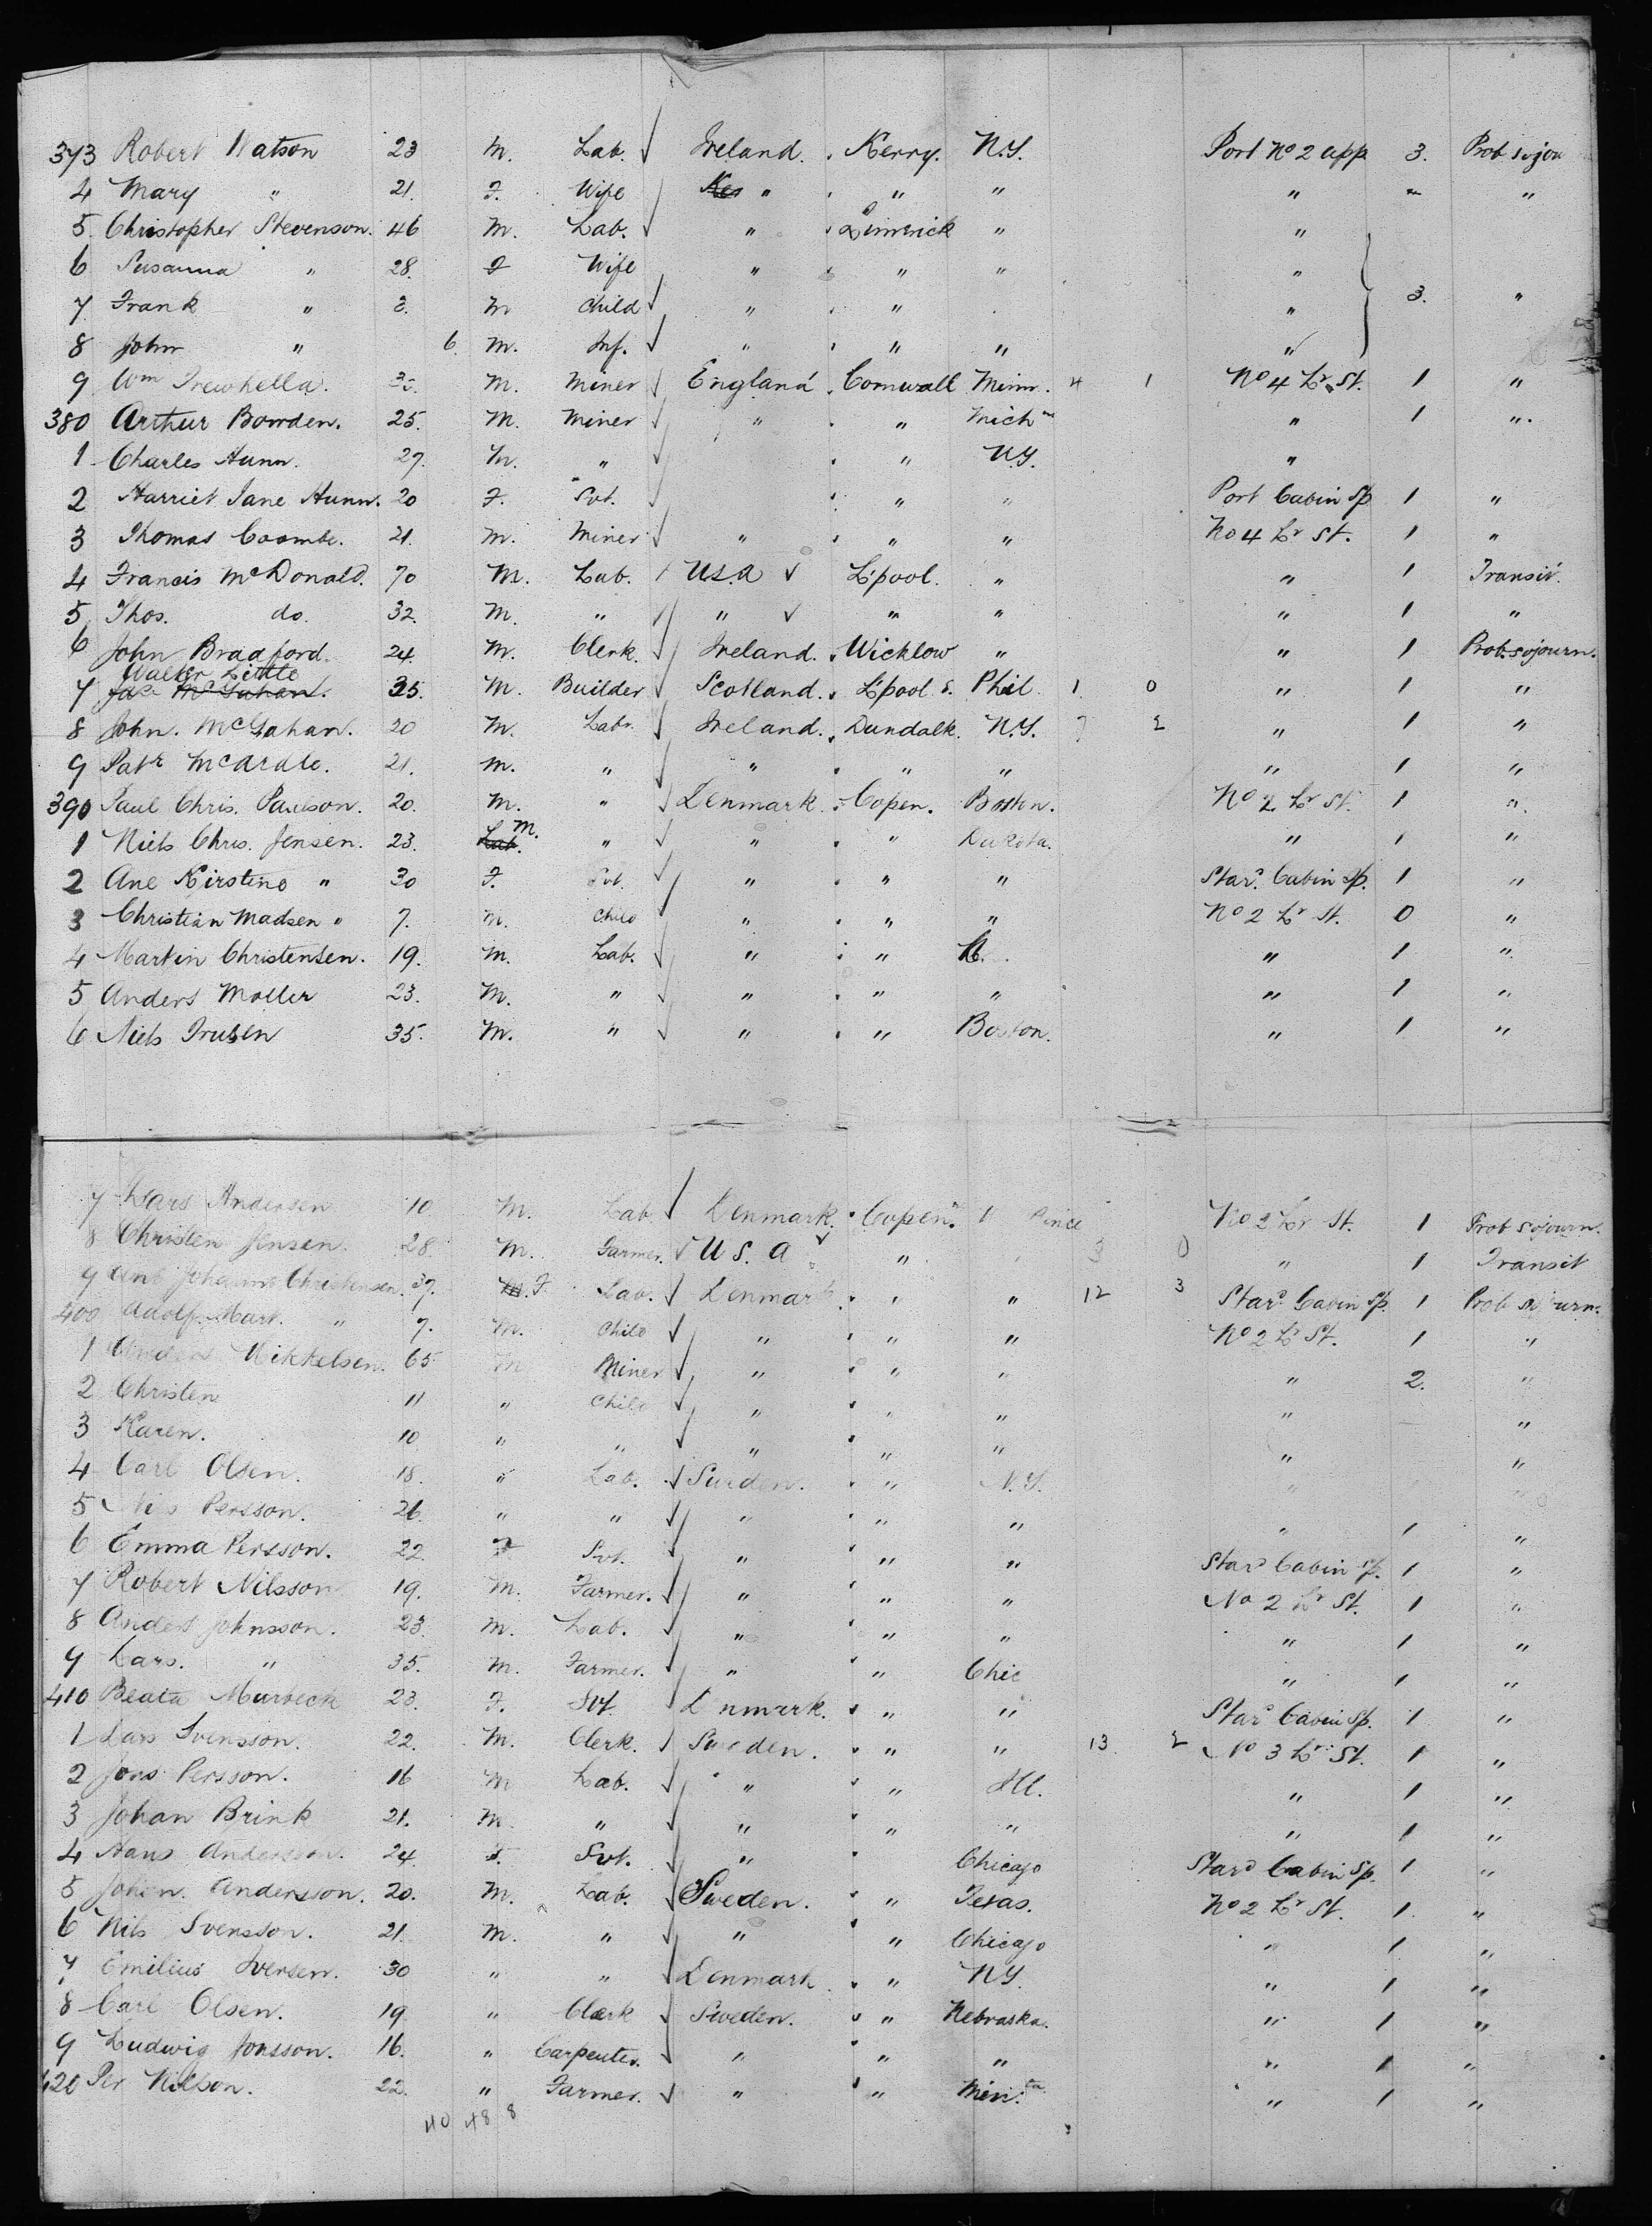 373 Robert Watson 23 M. Lab. Ireland. Kerry. N.Y. Port No 2 app 3. Prob sojou
4 Mary " 21. F. Wife " " " " "
5 Christopher Stevenson. 46 M. Lab. " Limerick " "
6 Susanna " 28. F Wife " " " "
7 Frank " 3. M Child " " " 3. "
8 John " 6. M. Inf. " " " "
9 Wm Trewhella. M. Miner England Cornwall Minn. 4 1 No 4 Lr St. 1 "
380 Arthur Bowden. 25. M. Miner " " Michn " 1 "
1 Charles Hunn. 27. M. " " N.Y. "
2 Harriet Jane Hunn. 20 F. Svt. " " Port Cabin Sp 1 "
3 Thomas Coombe. 21. M. Miner " " " No 4 Lr St. 1 "
4 Francis McDonald. 70 M. Lab. U.S.A L'pool. " " 1 Transit.
5 Thos. do. 32. M. " " " " " 1 "
6 John Bradford. 24. M. Clerk. Ireland. Wicklow " " 1 Prob. sojourn.
Walter Little
7 Jas McGahan. 35. M. Builder Scotland. L'pool Phil. 1 0 " 1 "
8 John. McGahan. 20 M. Labr. Ireland. Dundalk. N.Y. 7 2 " 1 "
9 Patk McArdle. 21. M. " " " " " 1 "
390 Paul Chris. Paulson. 20. M. " Denmark. Copen. Boston. No 2 Lr St. 1 "
1 Niels Chris. Jensen. 23. Lab. M. " " " Dakota. " 1 "
2 Ane Kirstine " 30 F. Svt. " " " Stard. Cabin Sp. 1 "
3 Christian Madsen " 7. M. Child " " " No 2 Lr St. 0 "
4 Martin Christensen. 19. M. Lab. " " " 1 "
5 Anders Moller 23. M. " " " " " 1 "
6 Niels Trulsen 35. M. " " " Boston. " 1 "
7 Lars Andersen 10 M. Lab. Denmark. Copen. No 2 Lr St. 1 Prob sojourn.
8 Christen Jensen. 28. M. Farmer. U.S.A " 3 0 " 1 Transit
9 Ane Johanne Christensen. 37. M. F Lab. Denmark. " " 12 3 Stard Cabin Sp. 1 Prob sojourn.
400 Adolf. Mart. " 7. M. Child " " " No 2 Lr St. 1 "
1 Anders Mikkelsen. 65 M Miner " " " " 2. "
2 Christen 11 " Child " " " " "
3 Karen. 10 " " " " " " "
4 Carl Olsen. 18. " Lab. Sweden. " N.Y. " "
5 Nils Persson. 26. " " " " " " 1 "
6 Emma Persson. 22. F Svt. " " " Stard Cabin Sp. 1 "
7 Robert Nilsson 19. M. Farmer. " " " No 2 Lr St. 1 "
8 Anders Johnsson. 23. M. Lab. " " " " 1 "
9 Lars. " 35. M. Farmer. " " Chic " 1 "
410 Beata Murbeck 23. F. Svt. Denmark. " " Stard Cabin Sp. 1 "
1 Lars Svensson. 22. M. Clerk. Sweden. " " 13 2 No 3 Lr St. 1 "
2 Jons Persson. 16 M Lab. " " Ill. " 1 "
3 Johan Brink 21. M. " " " " " 1 "
4 Hans Andersson. 24. F. Svt. " Chicago Stard Cabin Sp. 1 "
5 Johan. Andersson. 20. M. Lab. Sweden. " Texas. No 2 Lr St. 1 "
6 Nils Svensson. 21. M. " " " Chicago " 1 "
7 Emilius Iversen. 30 " " Denmark. " N.Y. " 1 "
8 Carl Olsen. 19. " Clerk Sweden. " Nebraska. " 1 "
9 Ludwig Jonsson. 16. " Carpenter. " " " " 1 "
420 Per Nilson. 22. " Farmer. " " Minta " 1 "
40 48 8